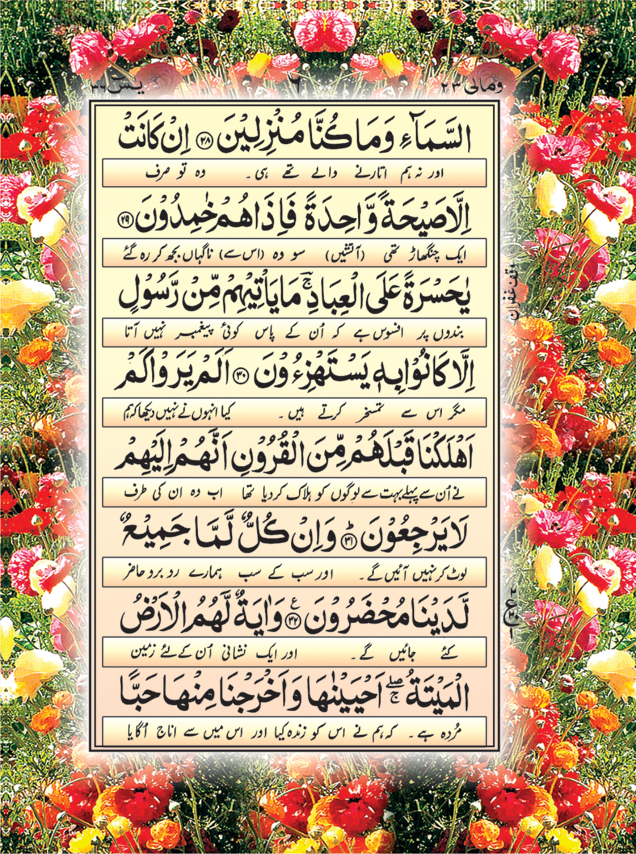 ومالی ۲۳ ۶ یٰسٓ ۳۶
السَّمَآءِ وَمَا كُنَّا مُنْزِلِیْنَ ﴿۲۸﴾ اِنْ كَانَتْ
اور نہ ہم اتارنے والے تھے ہی۔ وہ تو صرف
اِلَّا صَیْحَةً وَّاحِدَةً فَاِذَا هُمْ خٰمِدُوْنَ ﴿۲۹﴾
ایک چنگھاڑ تھی (آتشیں) سو وہ (اس سے) ناگہاں بجھ کر رہ گئے
یٰحَسْرَةً عَلَی الْعِبَادِ ۚ مَا یَاْتِیْهِمْ مِّنْ رَّسُوْلٍ
بندوں پر افسوس ہے کہ اُن کے پاس کوئی پیغمبر نہیں آتا
اِلَّا كَانُوْا بِهٖ یَسْتَهْزِءُوْنَ ﴿۳۰﴾ اَلَمْ یَرَوْا كَمْ
مگر اس سے تمسخر کرتے ہیں۔ کیا انہوں نے نہیں دیکھا کہ ہم
اَهْلَكْنَا قَبْلَهُمْ مِّنَ الْقُرُوْنِ اَنَّهُمْ اِلَیْهِمْ
نے اُن سے پہلے بہت سے لوگوں کو ہلاک کر دیا تھا اب وہ ان کی طرف
لَا یَرْجِعُوْنَ ﴿۳۱﴾ؕ وَاِنْ كُلٌّ لَّمَّا جَمِیْعٌ
لوٹ کر نہیں آئیں گے۔ اور سب کے سب ہمارے رو برو حاضر
لَّدَیْنَا مُحْضَرُوْنَ ﴿۳۲﴾ع وَاٰیَةٌ لَّهُمُ الْاَرْضُ
کئے جائیں گے۔ اور ایک نشانی اُن کے لئے زمین
الْمَیْتَةُ ۖۚ اَحْیَیْنٰهَا وَاَخْرَجْنَا مِنْهَا حَبًّا
مُردہ ہے۔ کہ ہم نے اس کو زندہ کیا اور اس میں سے اناج اُگایا
وقف غفران